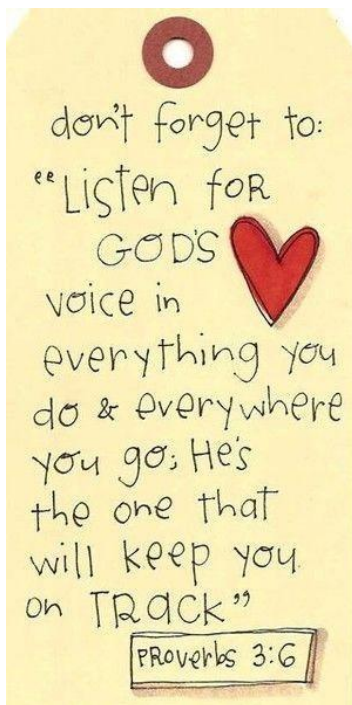 don't forget to:
"Listen foR
GOD'S
voice in
everything you
do & everywhere
you go; He's
the one that
will keep you
on TRack"
PRoverbs 3:6